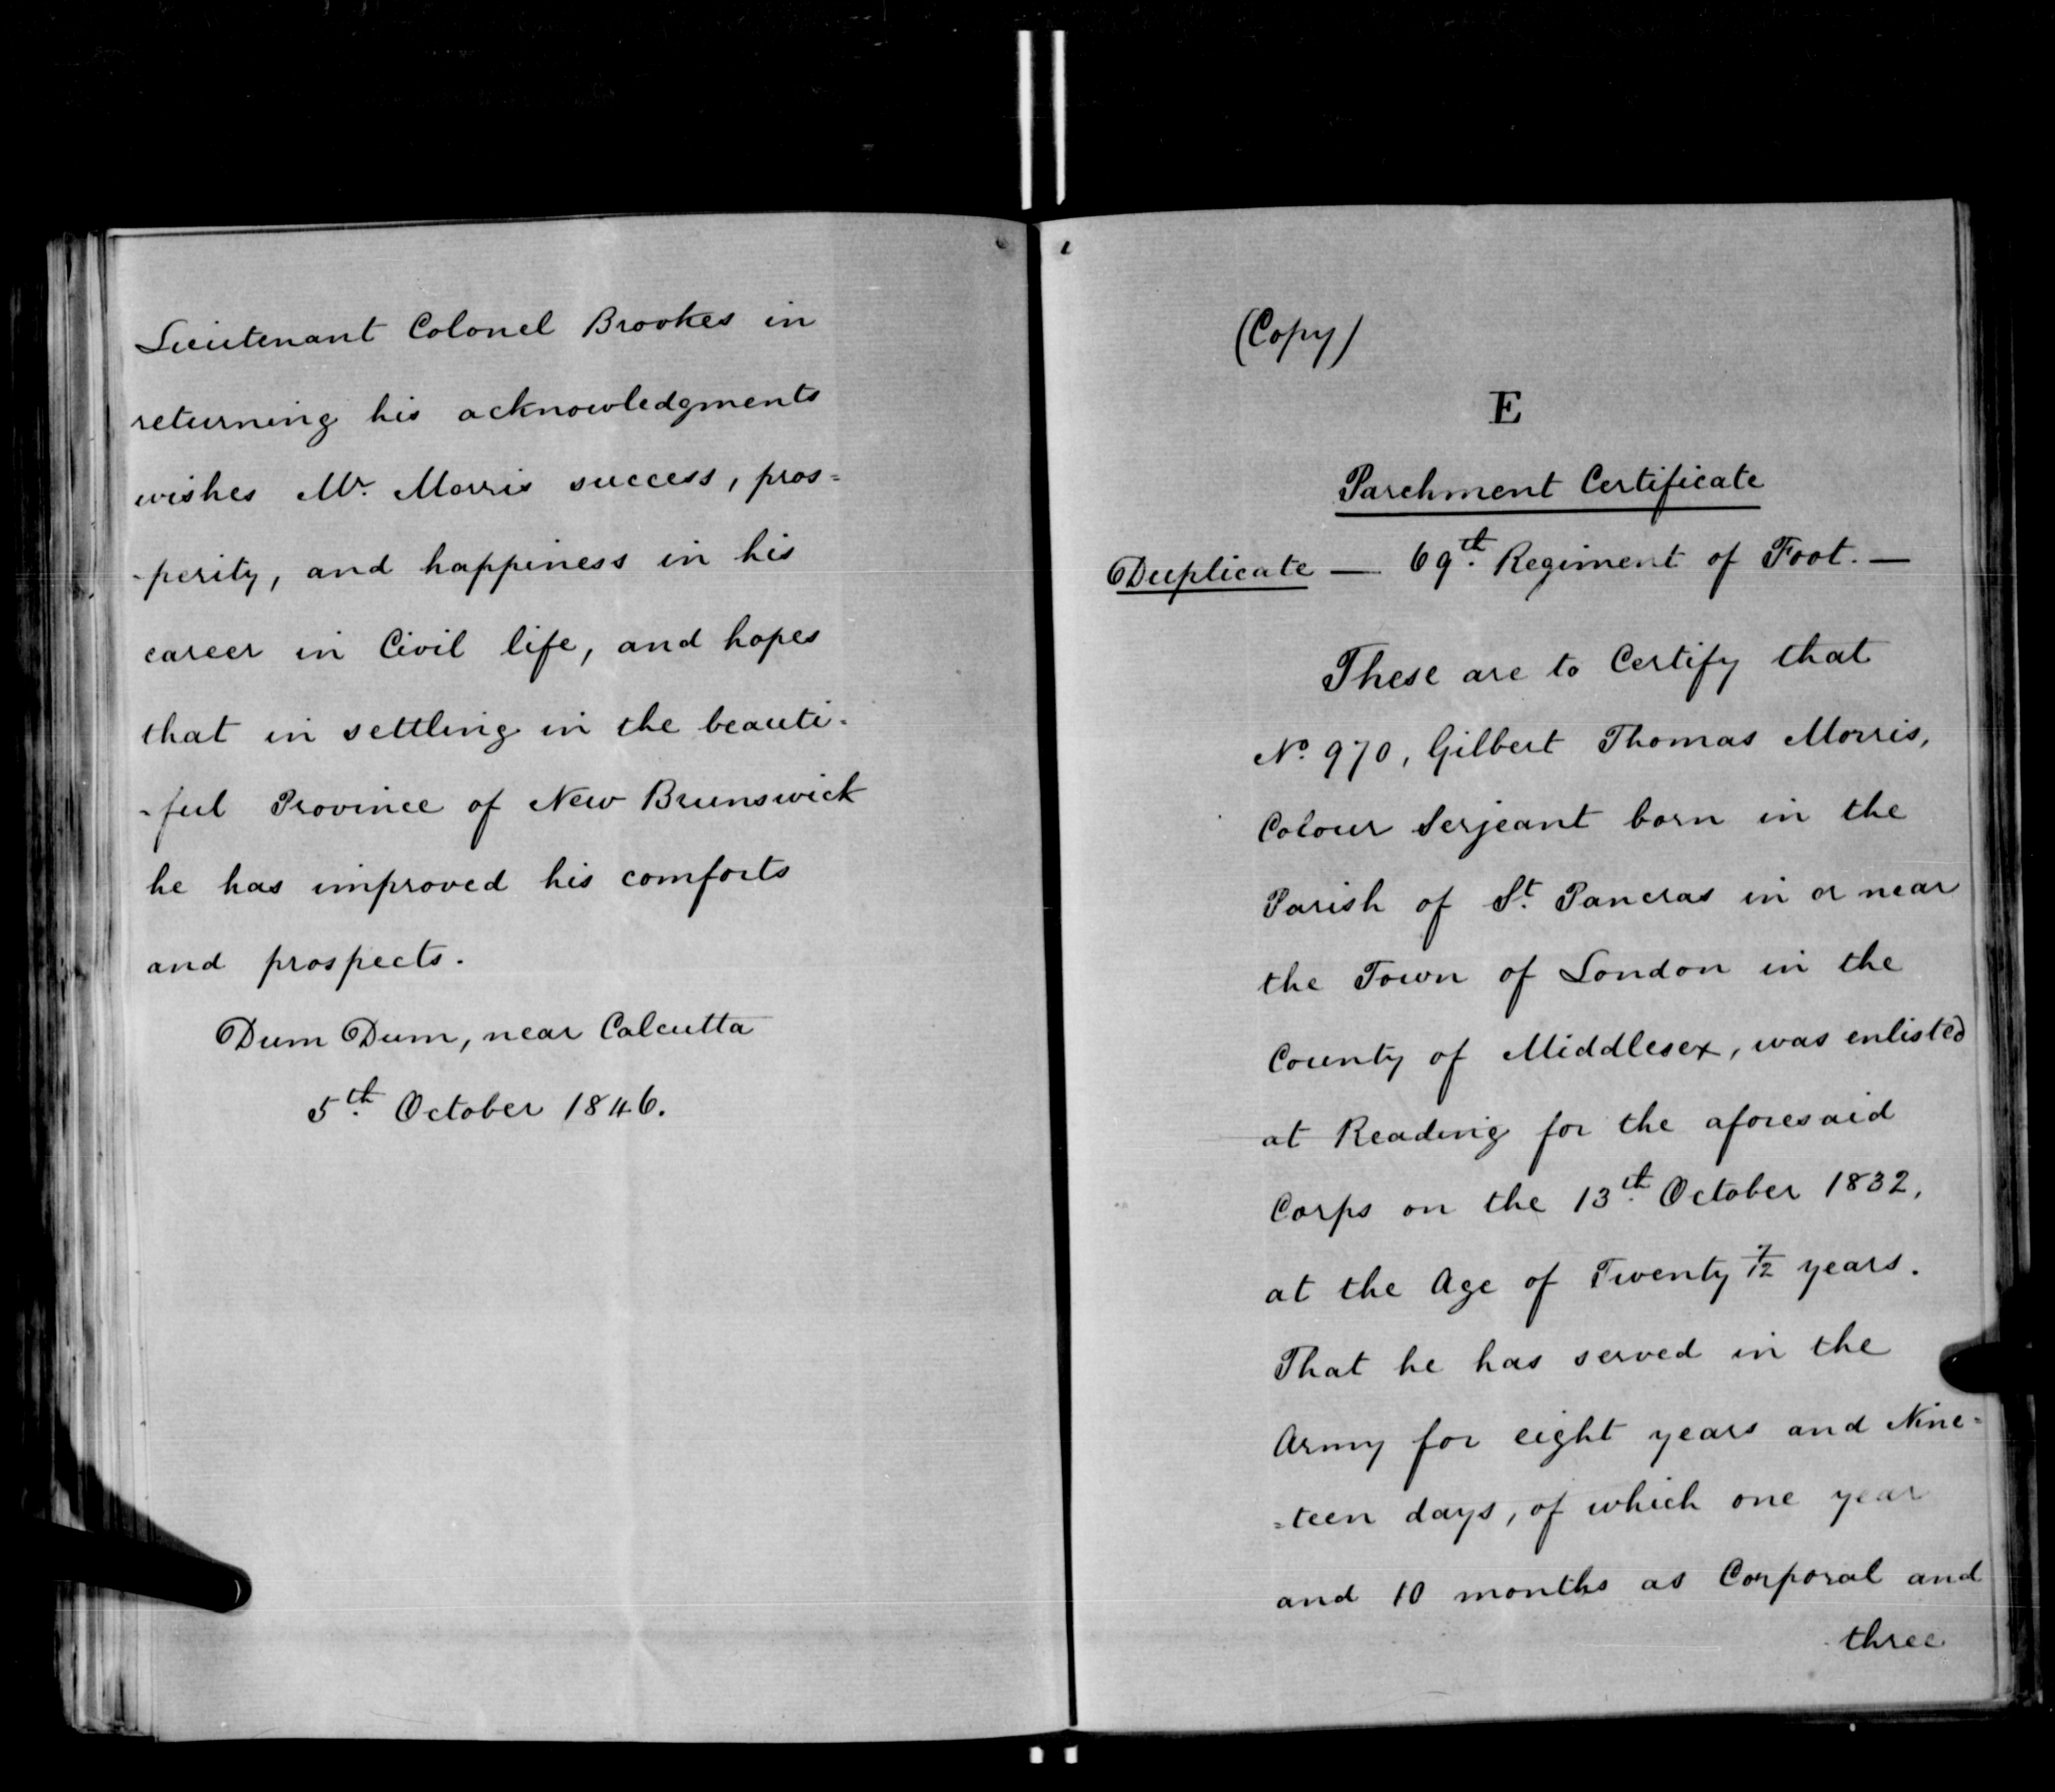 Lieutenant Colonel Brookes in
returning his acknowledgments
wishes Mr. Morris success, pros=
-perity, and happiness in his
career in Civil life, and hopes
that in settling in the beauti-
-ful Province of New Brunswick
he has improved his comforts
and prospects.
Dum Dum, near Calcutta
5th. October 1846.
(Copy)
E
Parchment Certificate
Duplicate — 69th. Regiment of Foot. —
These are to Certify that
No. 970, Gilbert Thomas Morris,
Colour Serjeant born in the
Parish of St. Pancras in or near
the Town of London in the
County of Middlesex, was enlisted
at Reading for the aforesaid
Corps on the 13th. October 1832,
at the Age of Twenty 7/12 years.
That he has served in the
Army for eight years and Nine=
=teen days, of which one year
and 10 months as Corporal and
three